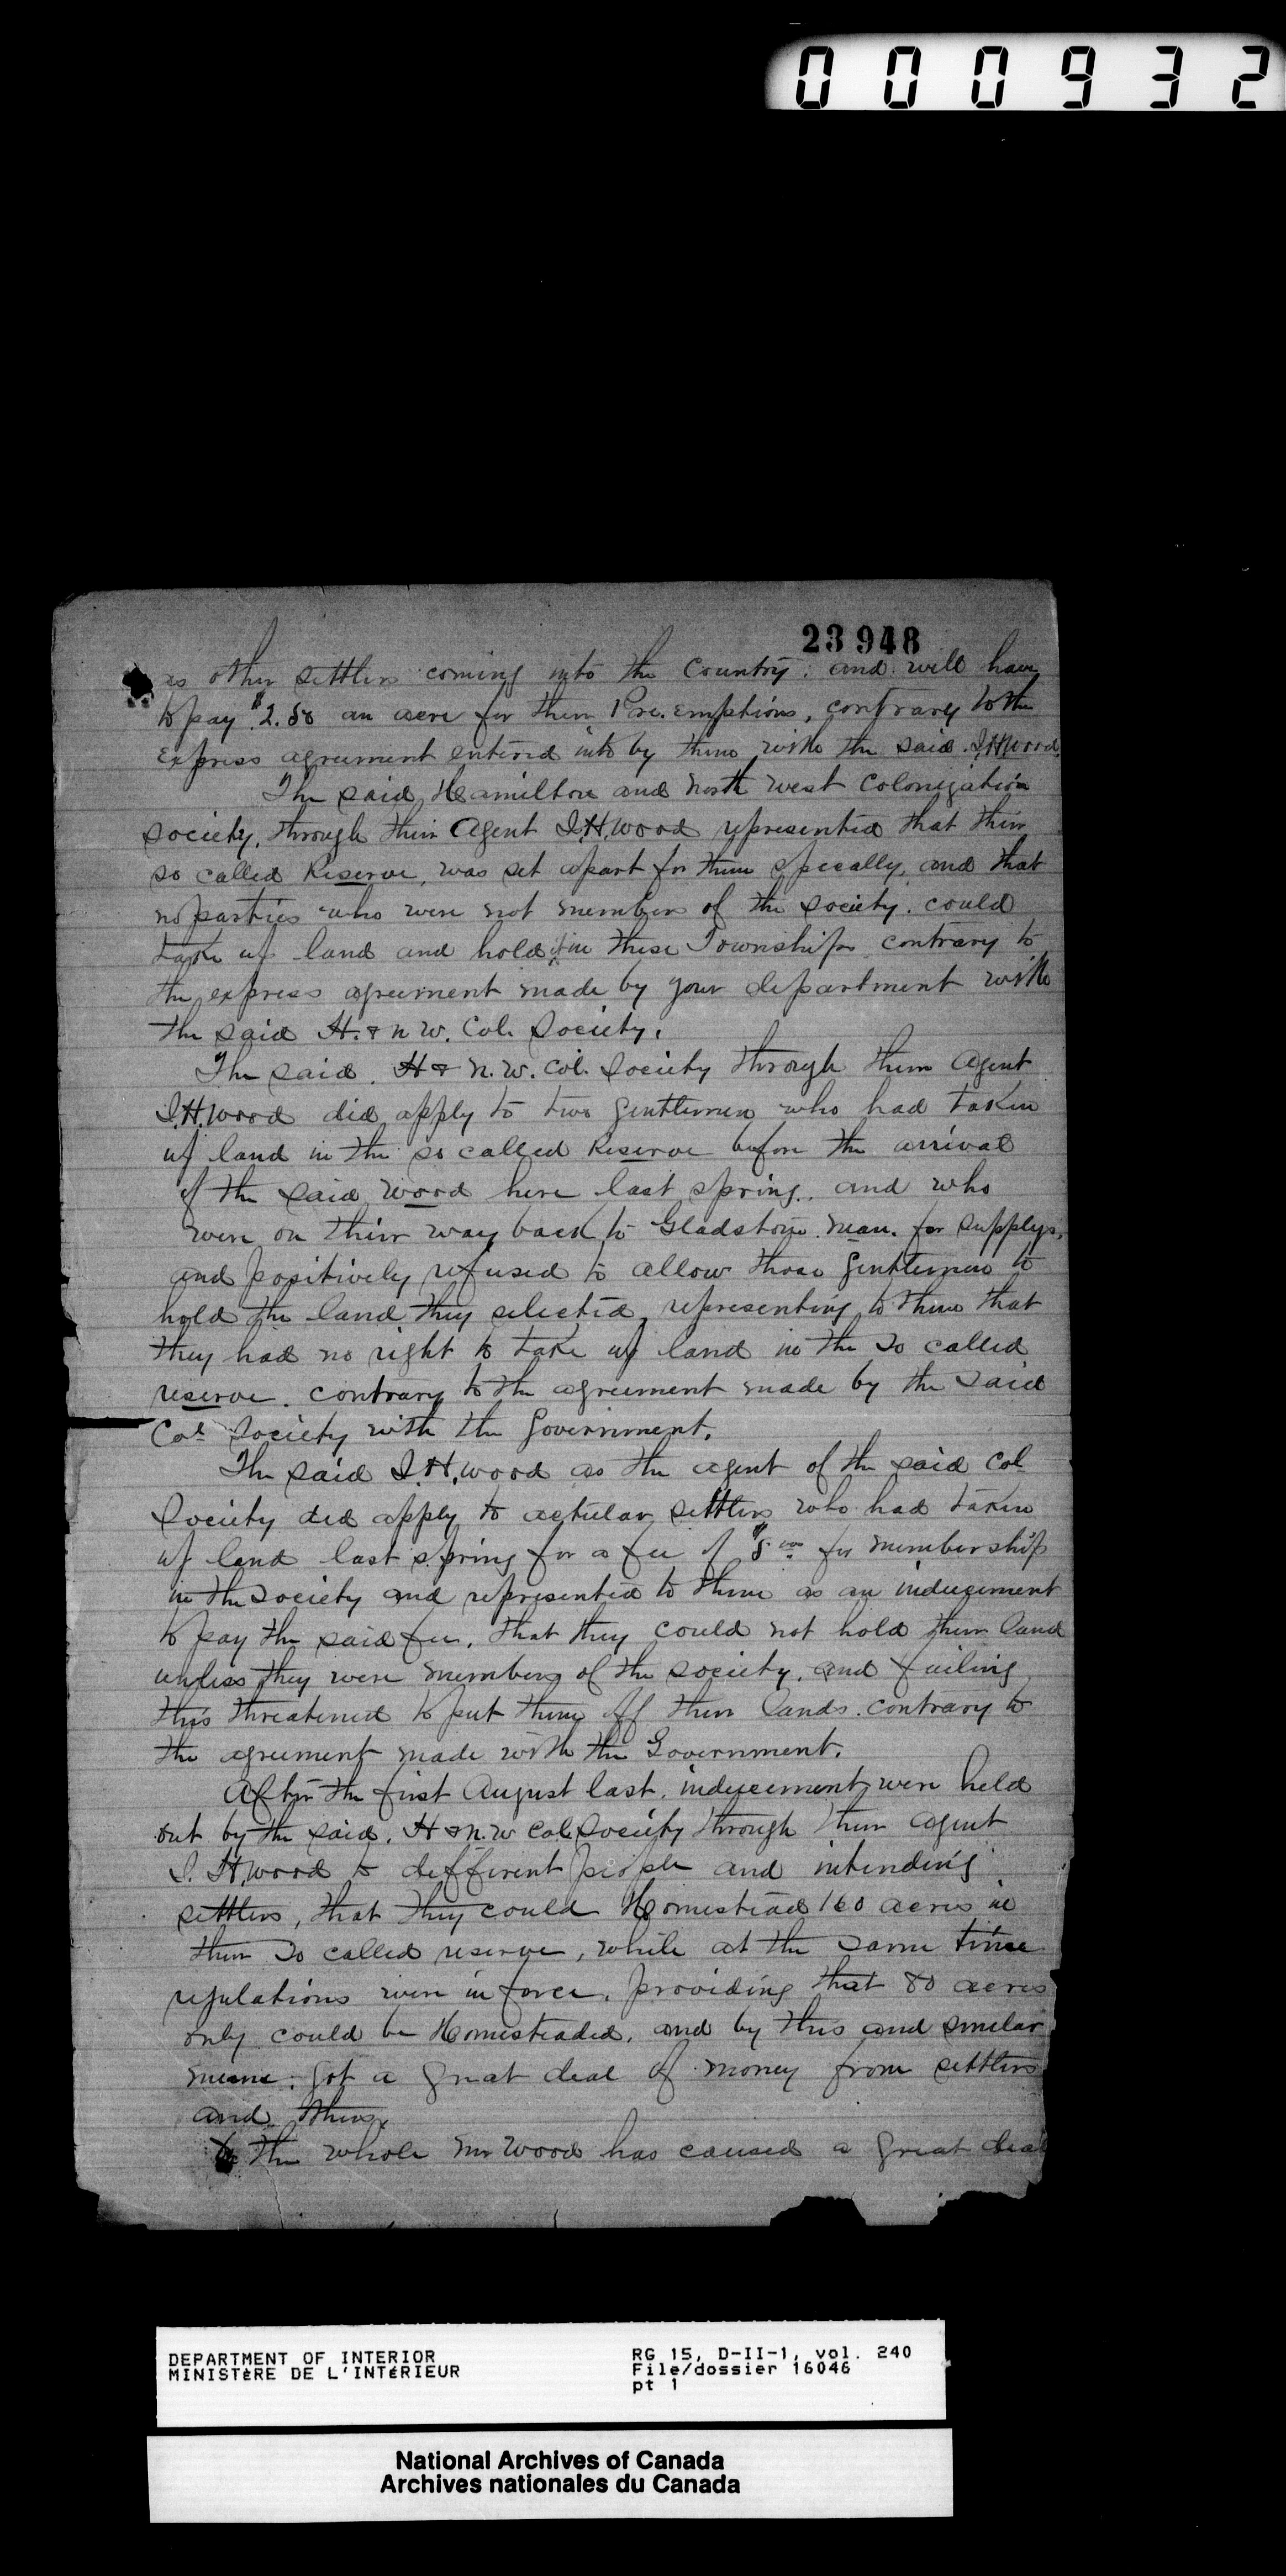 000932
23948
as other settlers coming into the Country; and will have
to pay $2.50 an acre for their Pre.emptions, contrary to the
express agreement entered into by them with the said I.H.Wood.
The said Hamilton and North West Colonization
Society, through their Agent I.H.Wood represented that their
so called Reserve, was set apart for them specally, and that
no parties who were not members of the Society. could
take up land and hold it in these Townships contrary to
the express agreement made by your department with
the said H. & N W. Col. Society.
The said. H & N.W. Col. Society through their Agent
I.H.Wood did apply to two gentlemen who had taken
up land in the so called Reserve before the arrival
of the said Wood here last spring. and who
were on their way back to Gladstone. Man. for supplys,
and positively refused to allow those gentlemen to
hold the land they selected, representing to them that
they had no right to take up land in the so called
reserve. contrary to the agreement made by the said
Col. Society with the Government.
The said I.H.Wood as the agent of the said Col
Society did apply to actular settlers who had taken
up land last spring for a fee of $5.00 for membership
in the Society and represented to them as an inducement
to pay the said fee. that they could not hold their land
unless they were members of the society. and failing
this threatened to put them off their lands. contrary to
the agreement made with the Government.
After the first August last. inducement were held
out by the said. H & N.W Col. Society through their agent
I. H.Wood to different people and intending
settlers, that they could Homestead 160 acres in
their so called reserve, while at the same time
regulations were in force. providing that 80 acres
only could be Homesteaded. and by this and similar
means. got a great deal of money from settlers
and others.
On the whole Mr Wood has caused a great deal
DEPARTMENT OF INTERIOR
MINISTÈRE DE L'INTÉRIEUR
RG 15, D-II-1, vol. 240
File/dossier 16046
pt 1
National Archives of Canada
Archives nationales du Canada